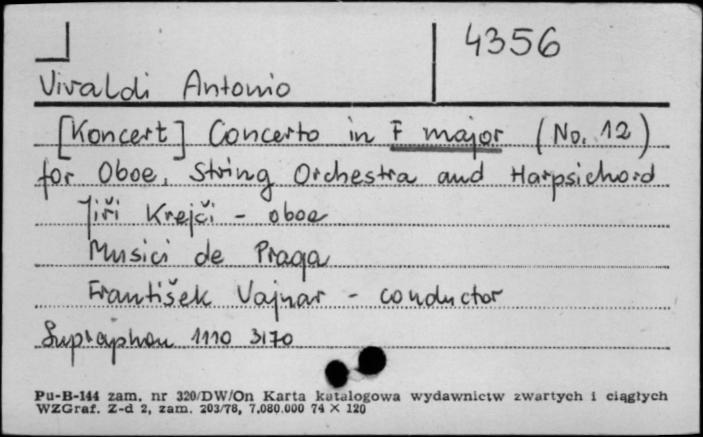 4356
Vivaldi Antonio
[Koncert] Concerto in F major (No. 12)
for Oboe, String Orchestra and Harpsichord
Jiří Krejčí - oboe
Musici de Praga
František Vajnar - conductor
Supraphon 1110 3170
Pu-B-144 zam. nr 320/DW/On Karta katalogowa wydawnictw zwartych i ciągłych
WZGraf. Z-d 2, zam. 203/78, 7.080.000 74 × 120